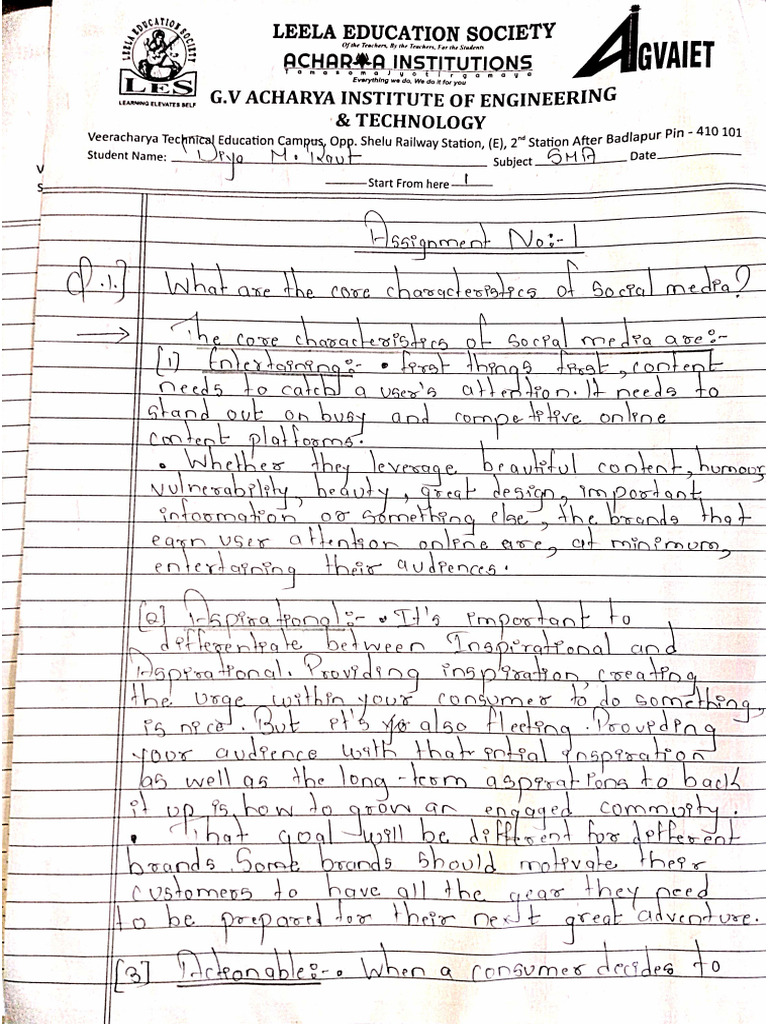 LEELA EDUCATION SOCIETY
Of the Teachers, By the Teachers, For the Students
ACHARYA INSTITUTIONS
Tamasomajyotirgamaya
Everything we do, We do it for you
LEELA EDUCATION SOCIETY
LES
LEARNING ELEVATES SELF
AIGVAIET
G.V ACHARYA INSTITUTE OF ENGINEERING
& TECHNOLOGY
Veeracharya Technical Education Campus, Opp. Shelu Railway Station, (E), 2nd Station After Badlapur Pin - 410 101
Student Name: M. Raut Subject SMA Date
Start From here 1
Assignment No:- 1
Q.1.] What are the core characteristics of Social media?
→ The core characteristics of social media are:-
[1] Entertaining:- • first things first, content
needs to catch a user's attention. It needs to
stand out on busy and competitive online
content platforms.
• Whether they leverage beautiful content, humour,
vulnerability, beauty, great design, important
information or something else, the brands that
earn user attention online are, at minimum,
entertaining their audiences.
[2] Aspirational:- • It's important to
differentiate between Inspirational and
Aspirational. Providing inspiration, creating
the urge within your consumer to do something,
is nice. But it's also fleeting. Providing
your audience with that intial inspiration
as well as the long-term aspirations to back
it up is how to grow an engaged commuity.
• That goal will be different for different
brands. Some brands should motivate their
customers to have all the gear they need
to be prepared for their next great adventure.
[3] Actionable:- • When a consumer decides to